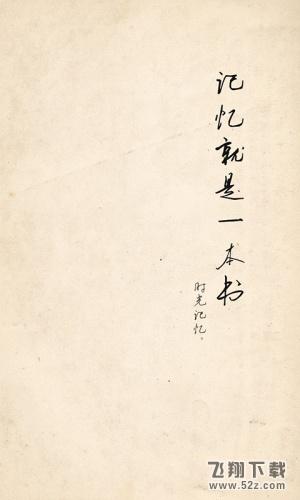 记忆就是一本书
时光记忆。
飞翔下载
www.52z.com